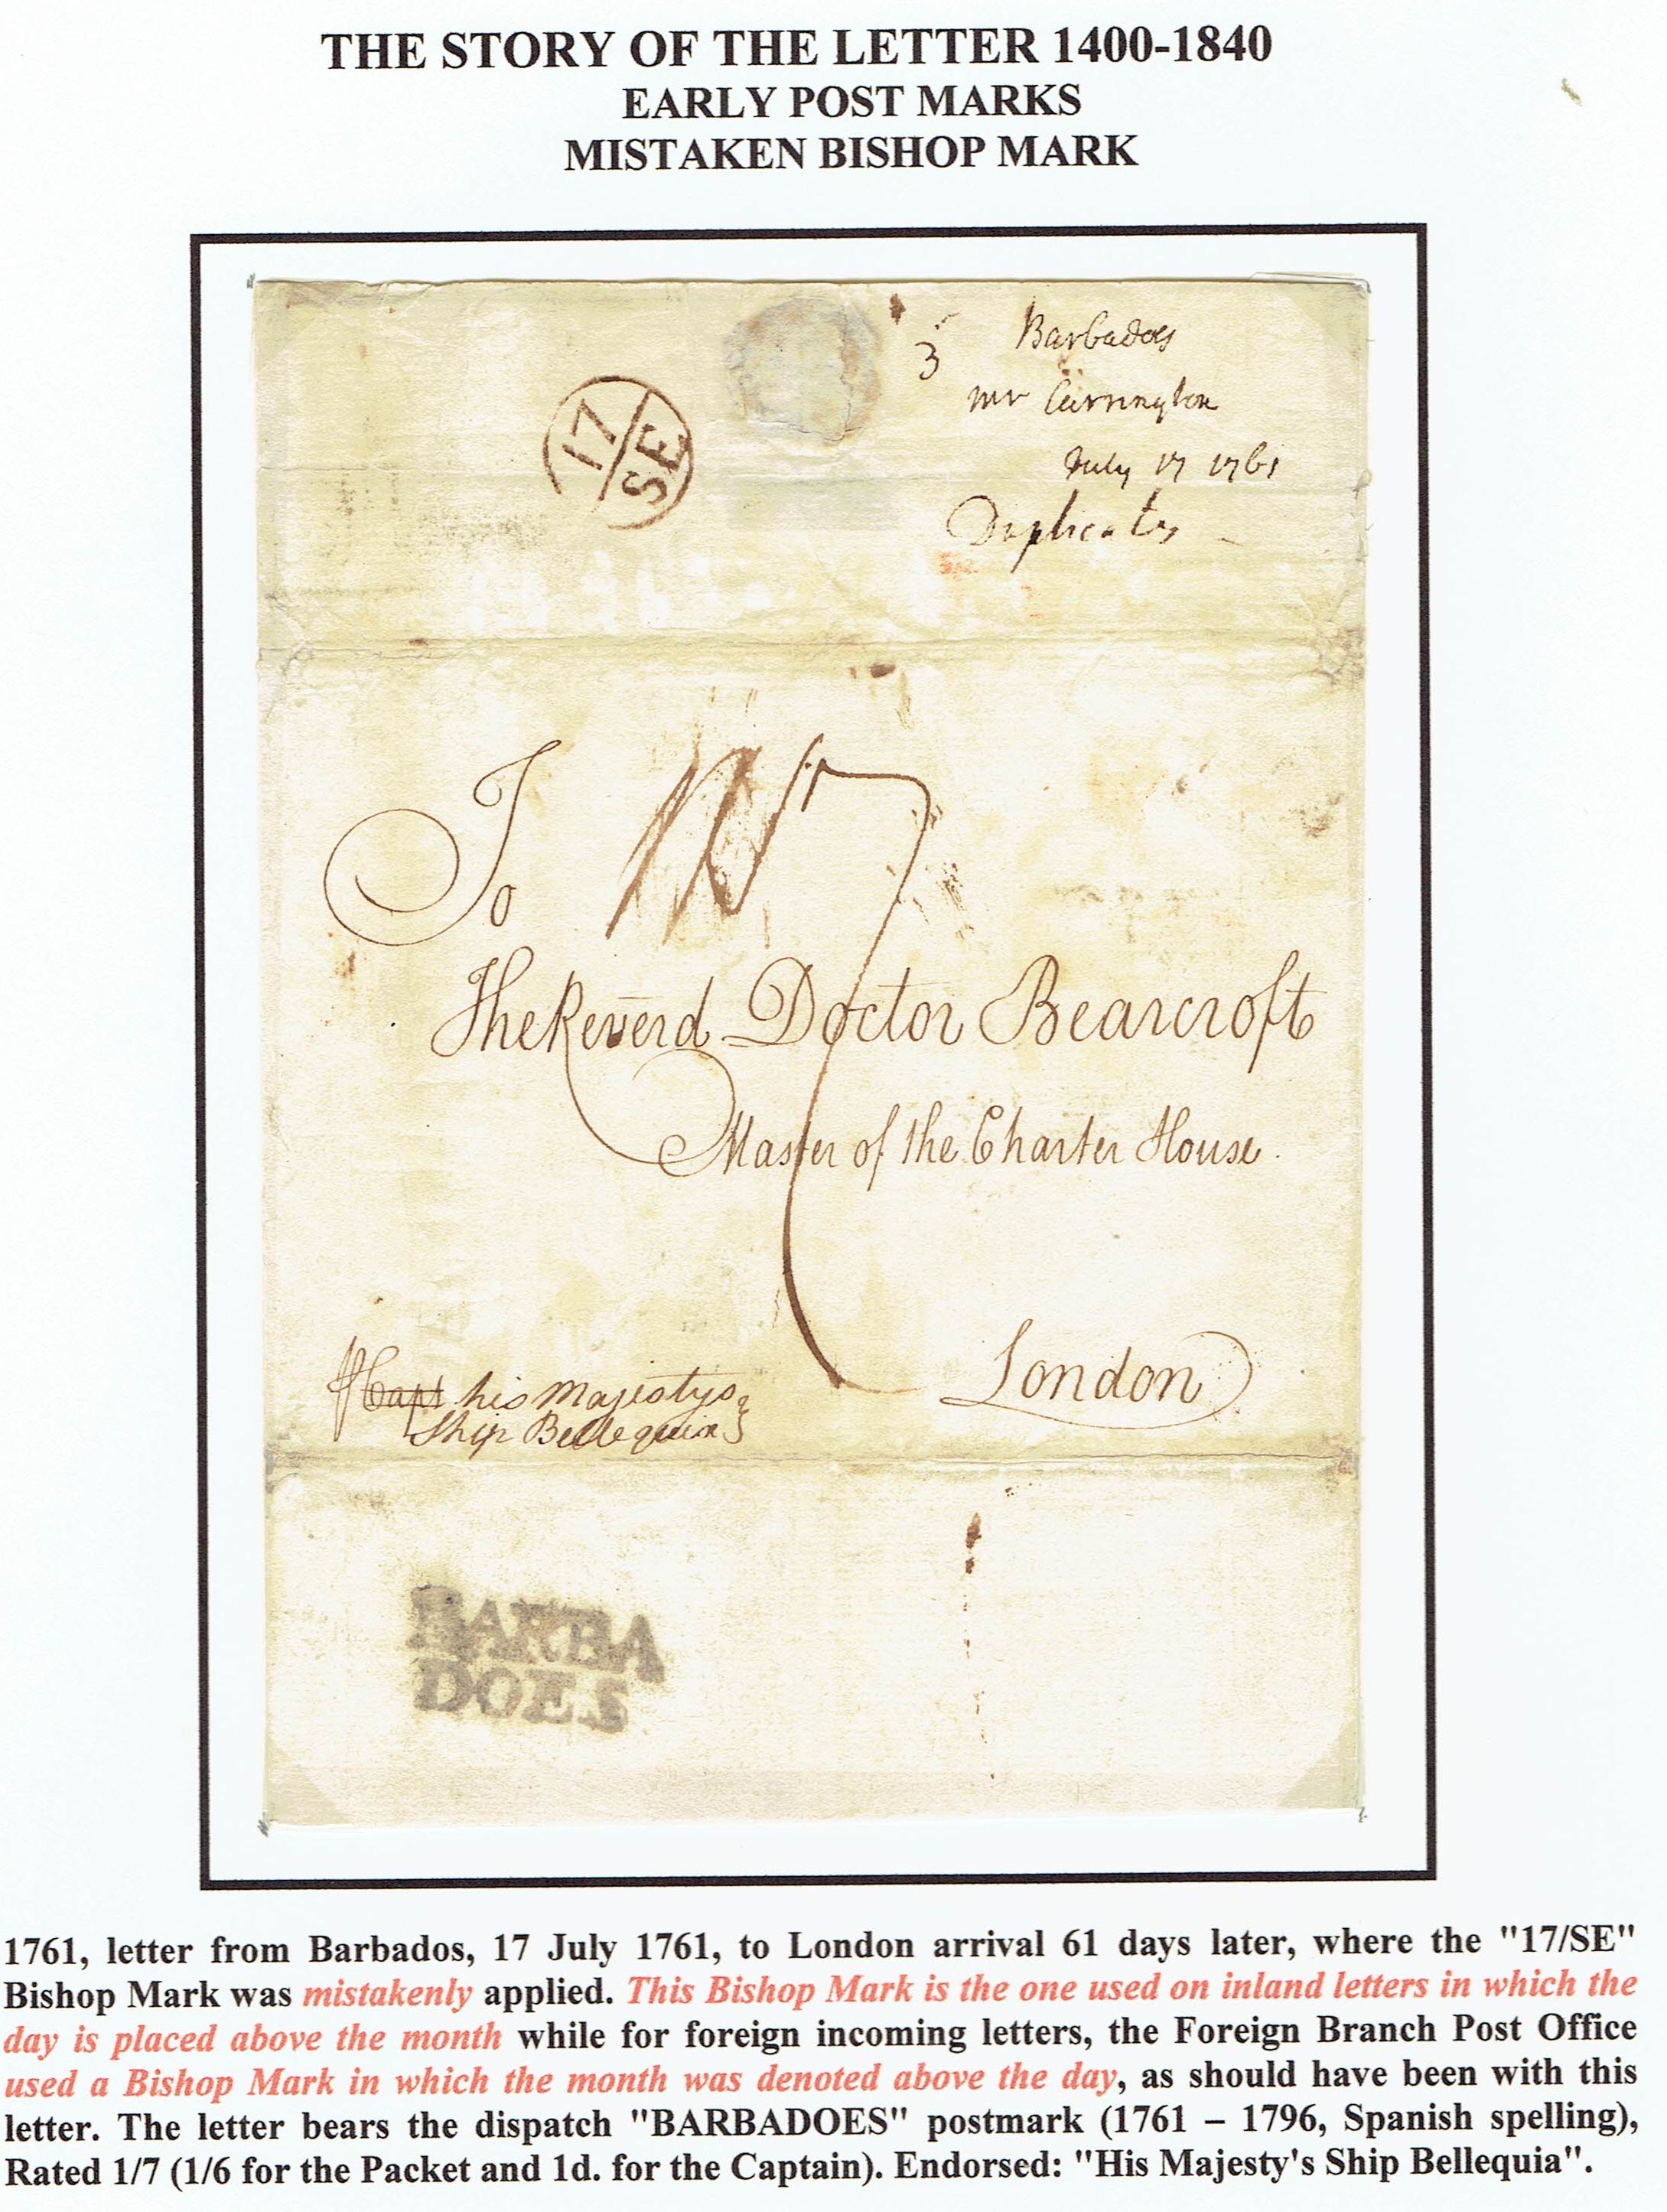 THE STORY OF THE LETTER 1400-1840
EARLY POST MARKS
MISTAKEN BISHOP MARK
3
Barbadoes
mr Carrington
July 17 1761
Duplicates
17
SE
To
The Reverd Doctor Bearcroft
Master of the Charter House.
London
Capt his Majestys
Ship Bellequia
BARBA
DOES
1761, letter from Barbados, 17 July 1761, to London arrival 61 days later, where the "17/SE"
Bishop Mark was mistakenly applied. This Bishop Mark is the one used on inland letters in which the
day is placed above the month while for foreign incoming letters, the Foreign Branch Post Office
used a Bishop Mark in which the month was denoted above the day, as should have been with this
letter. The letter bears the dispatch "BARBADOES" postmark (1761 – 1796, Spanish spelling),
Rated 1/7 (1/6 for the Packet and 1d. for the Captain). Endorsed: "His Majesty's Ship Bellequia".